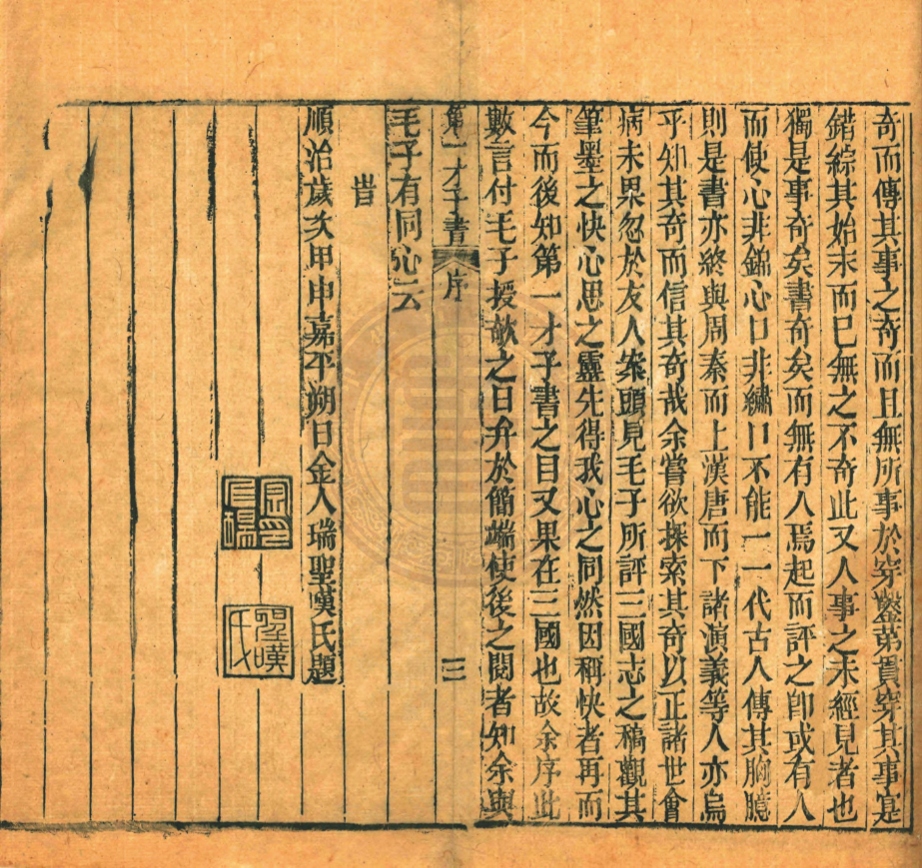 奇而傳其事之奇而且無所事於穿鑿第貫穿其事實
錯綜其始末而已無之不奇此又人事之未經見者也
獨是事奇矣書奇矣而無有人焉起而評之卽或有人
而使心非錦心口非繡口不能一一代古人傳其胸臆
則是書亦終與周秦而上漢唐而下諸演義等人亦烏
乎知其奇而信其奇哉余嘗欲探索其奇以正諸世會
病未果忽於友人案頭見毛子所評三國志之稿觀其
筆墨之快心思之靈先得我心之同然因稱快者再而
今而後知第一才子書之目又果在三國也故余序此
數言付毛子授劂之日弁於簡端使後之閱者知余與
第一才子書 序 三
毛子有同心云
旹
順治歲次甲申嘉平朔日金人瑞聖嘆氏題
聖嘆
氏